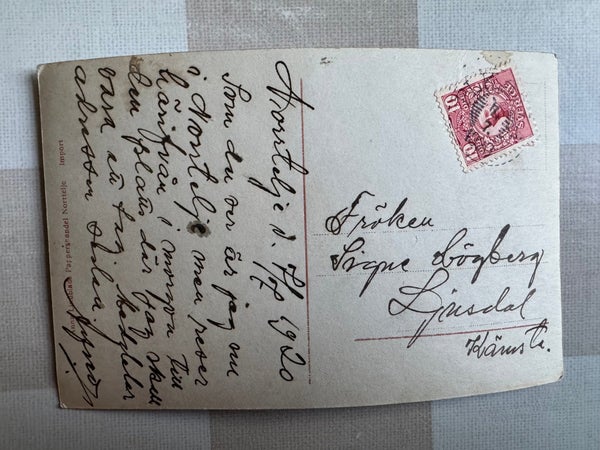 Norrtelje d. 1920
Som du ser är jag nu
i Norrtelje men reser
härifrån i morgon till
den plats där jag skall
vara en tag Meddelar
adressen sedan.
Pappershandel Norrtelje Import
SVERIGE
10 10
Fröken
Signe Högberg
Ljusdal
Kämsta.